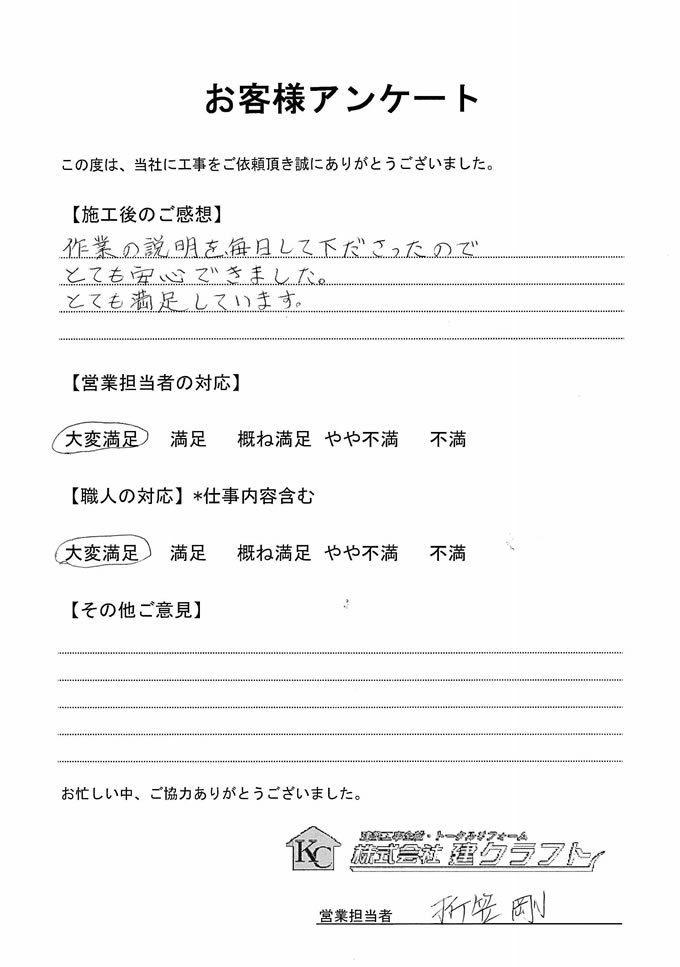 お客様アンケート
この度は、当社に工事をご依頼頂き誠にありがとうございました。
【施工後のご感想】
作業の説明を、毎日して下ださったので
とても安心できました。
とても満足しています。
【営業担当者の対応】
大変満足 満足 概ね満足 やや不満 不満
【職人の対応】*仕事内容含む
大変満足 満足 概ね満足 やや不満 不満
【その他ご意見】
お忙しい中、ご協力ありがとうございました。
建築工事全般・トータルリフォーム
KC 株式会社 建クラフト
営業担当者 折笠 剛